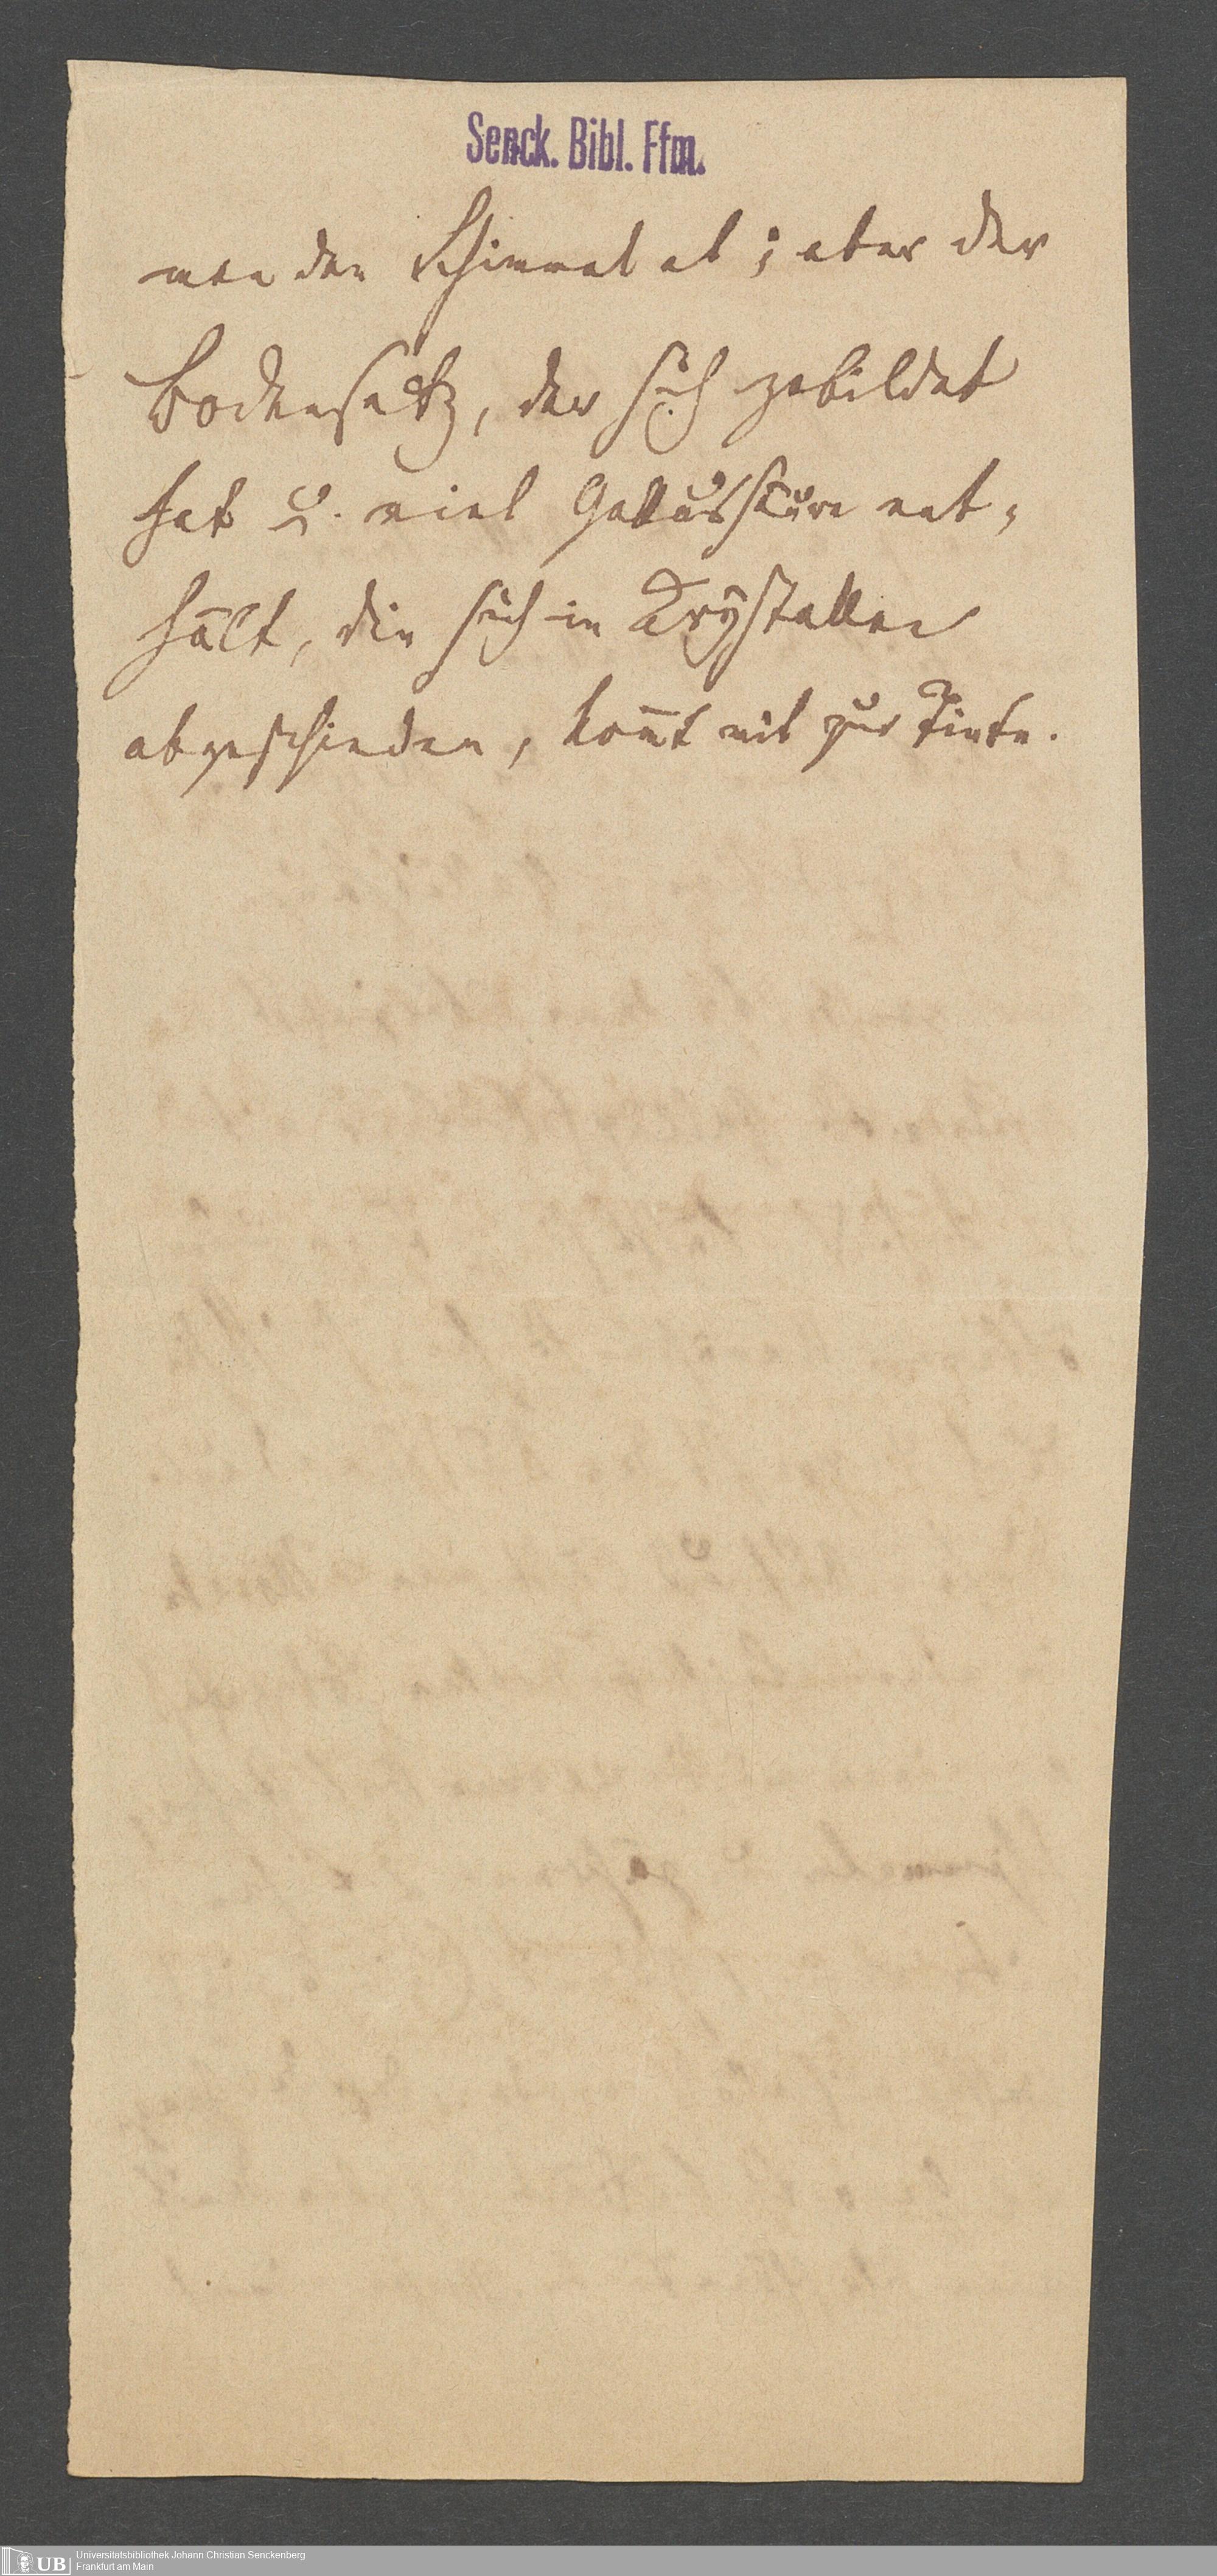 Senck. Bibl. Ffm.
man den Schimmel ab; aber der
Bodensatz, der sich gebildet
hat u. viel Gallussäure ent-
hält, die sich in Krystallen
abgeschieden, kom̄t mit zur Tinte.
UB
Universitätsbibliothek Johann Christian Senckenberg
Frankfurt am Main